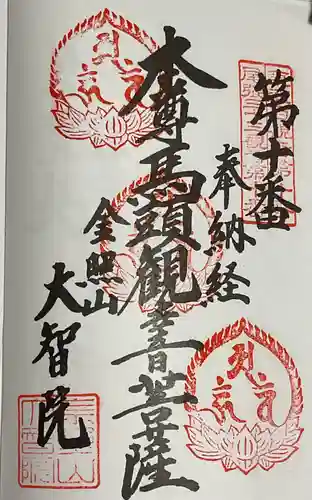 第十番
奉納経
本尊馬頭観世音菩薩
金照山
大智院